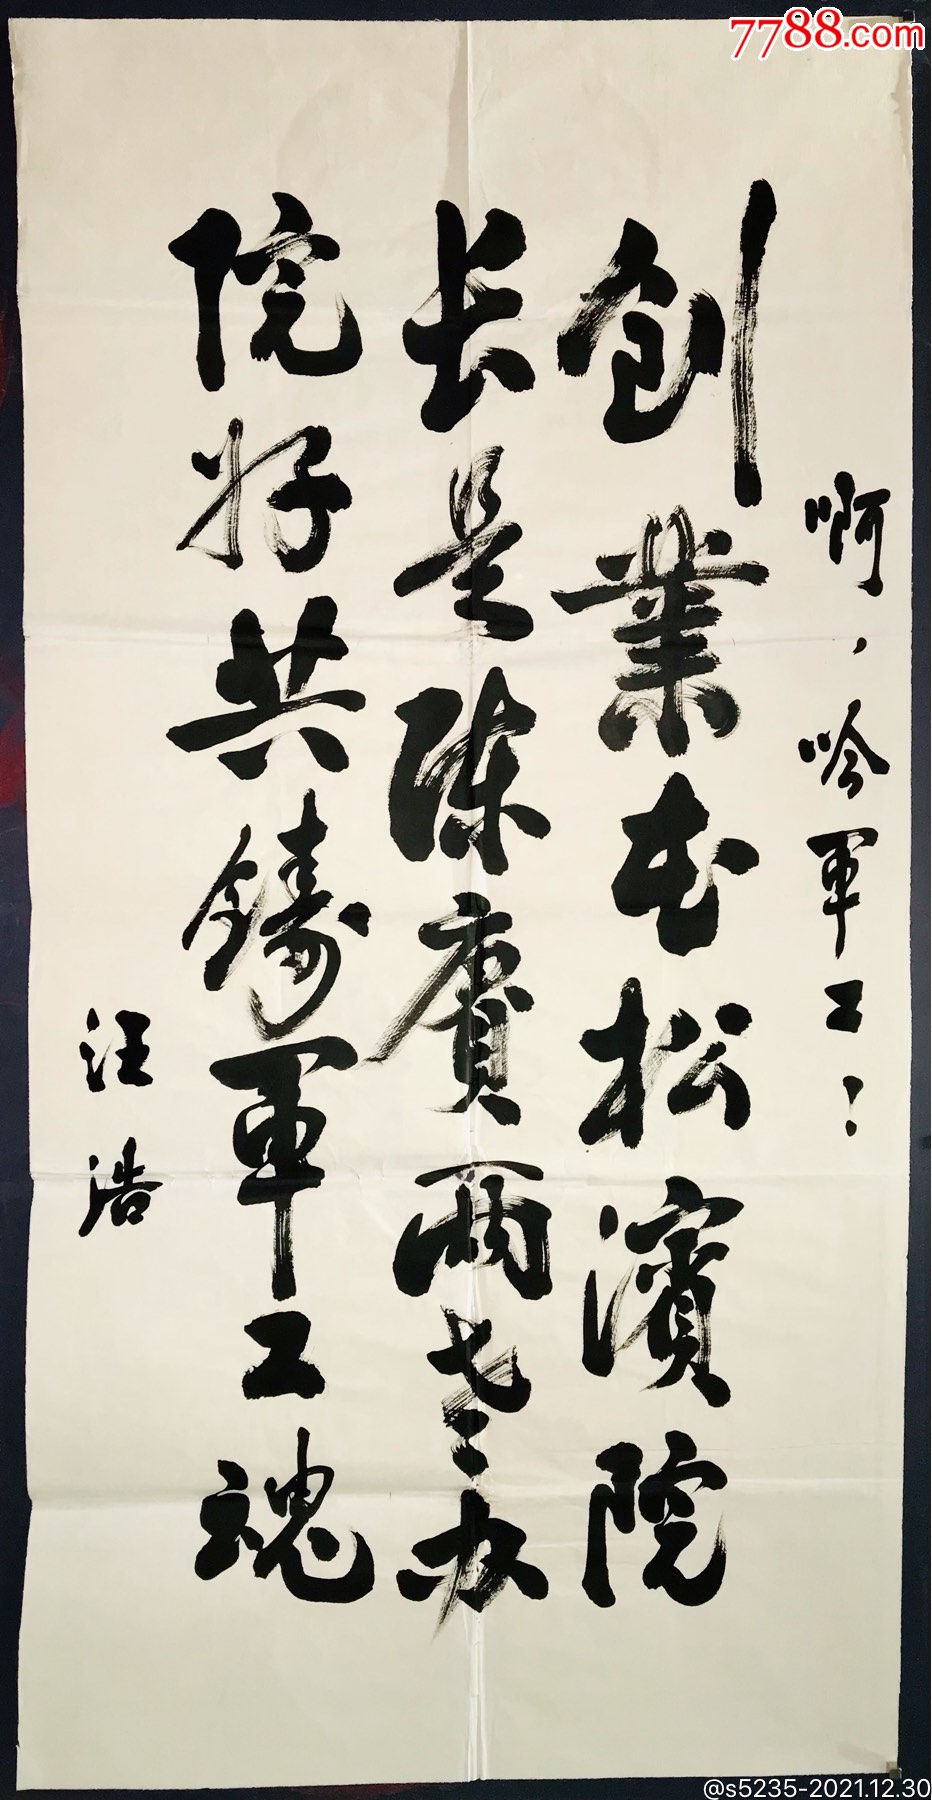 7788.com
啊，哈軍工！
创業在松濱院
长是陈賡兩老办
院好共鑄軍工魂
汪浩
@s5235-2021.12.30